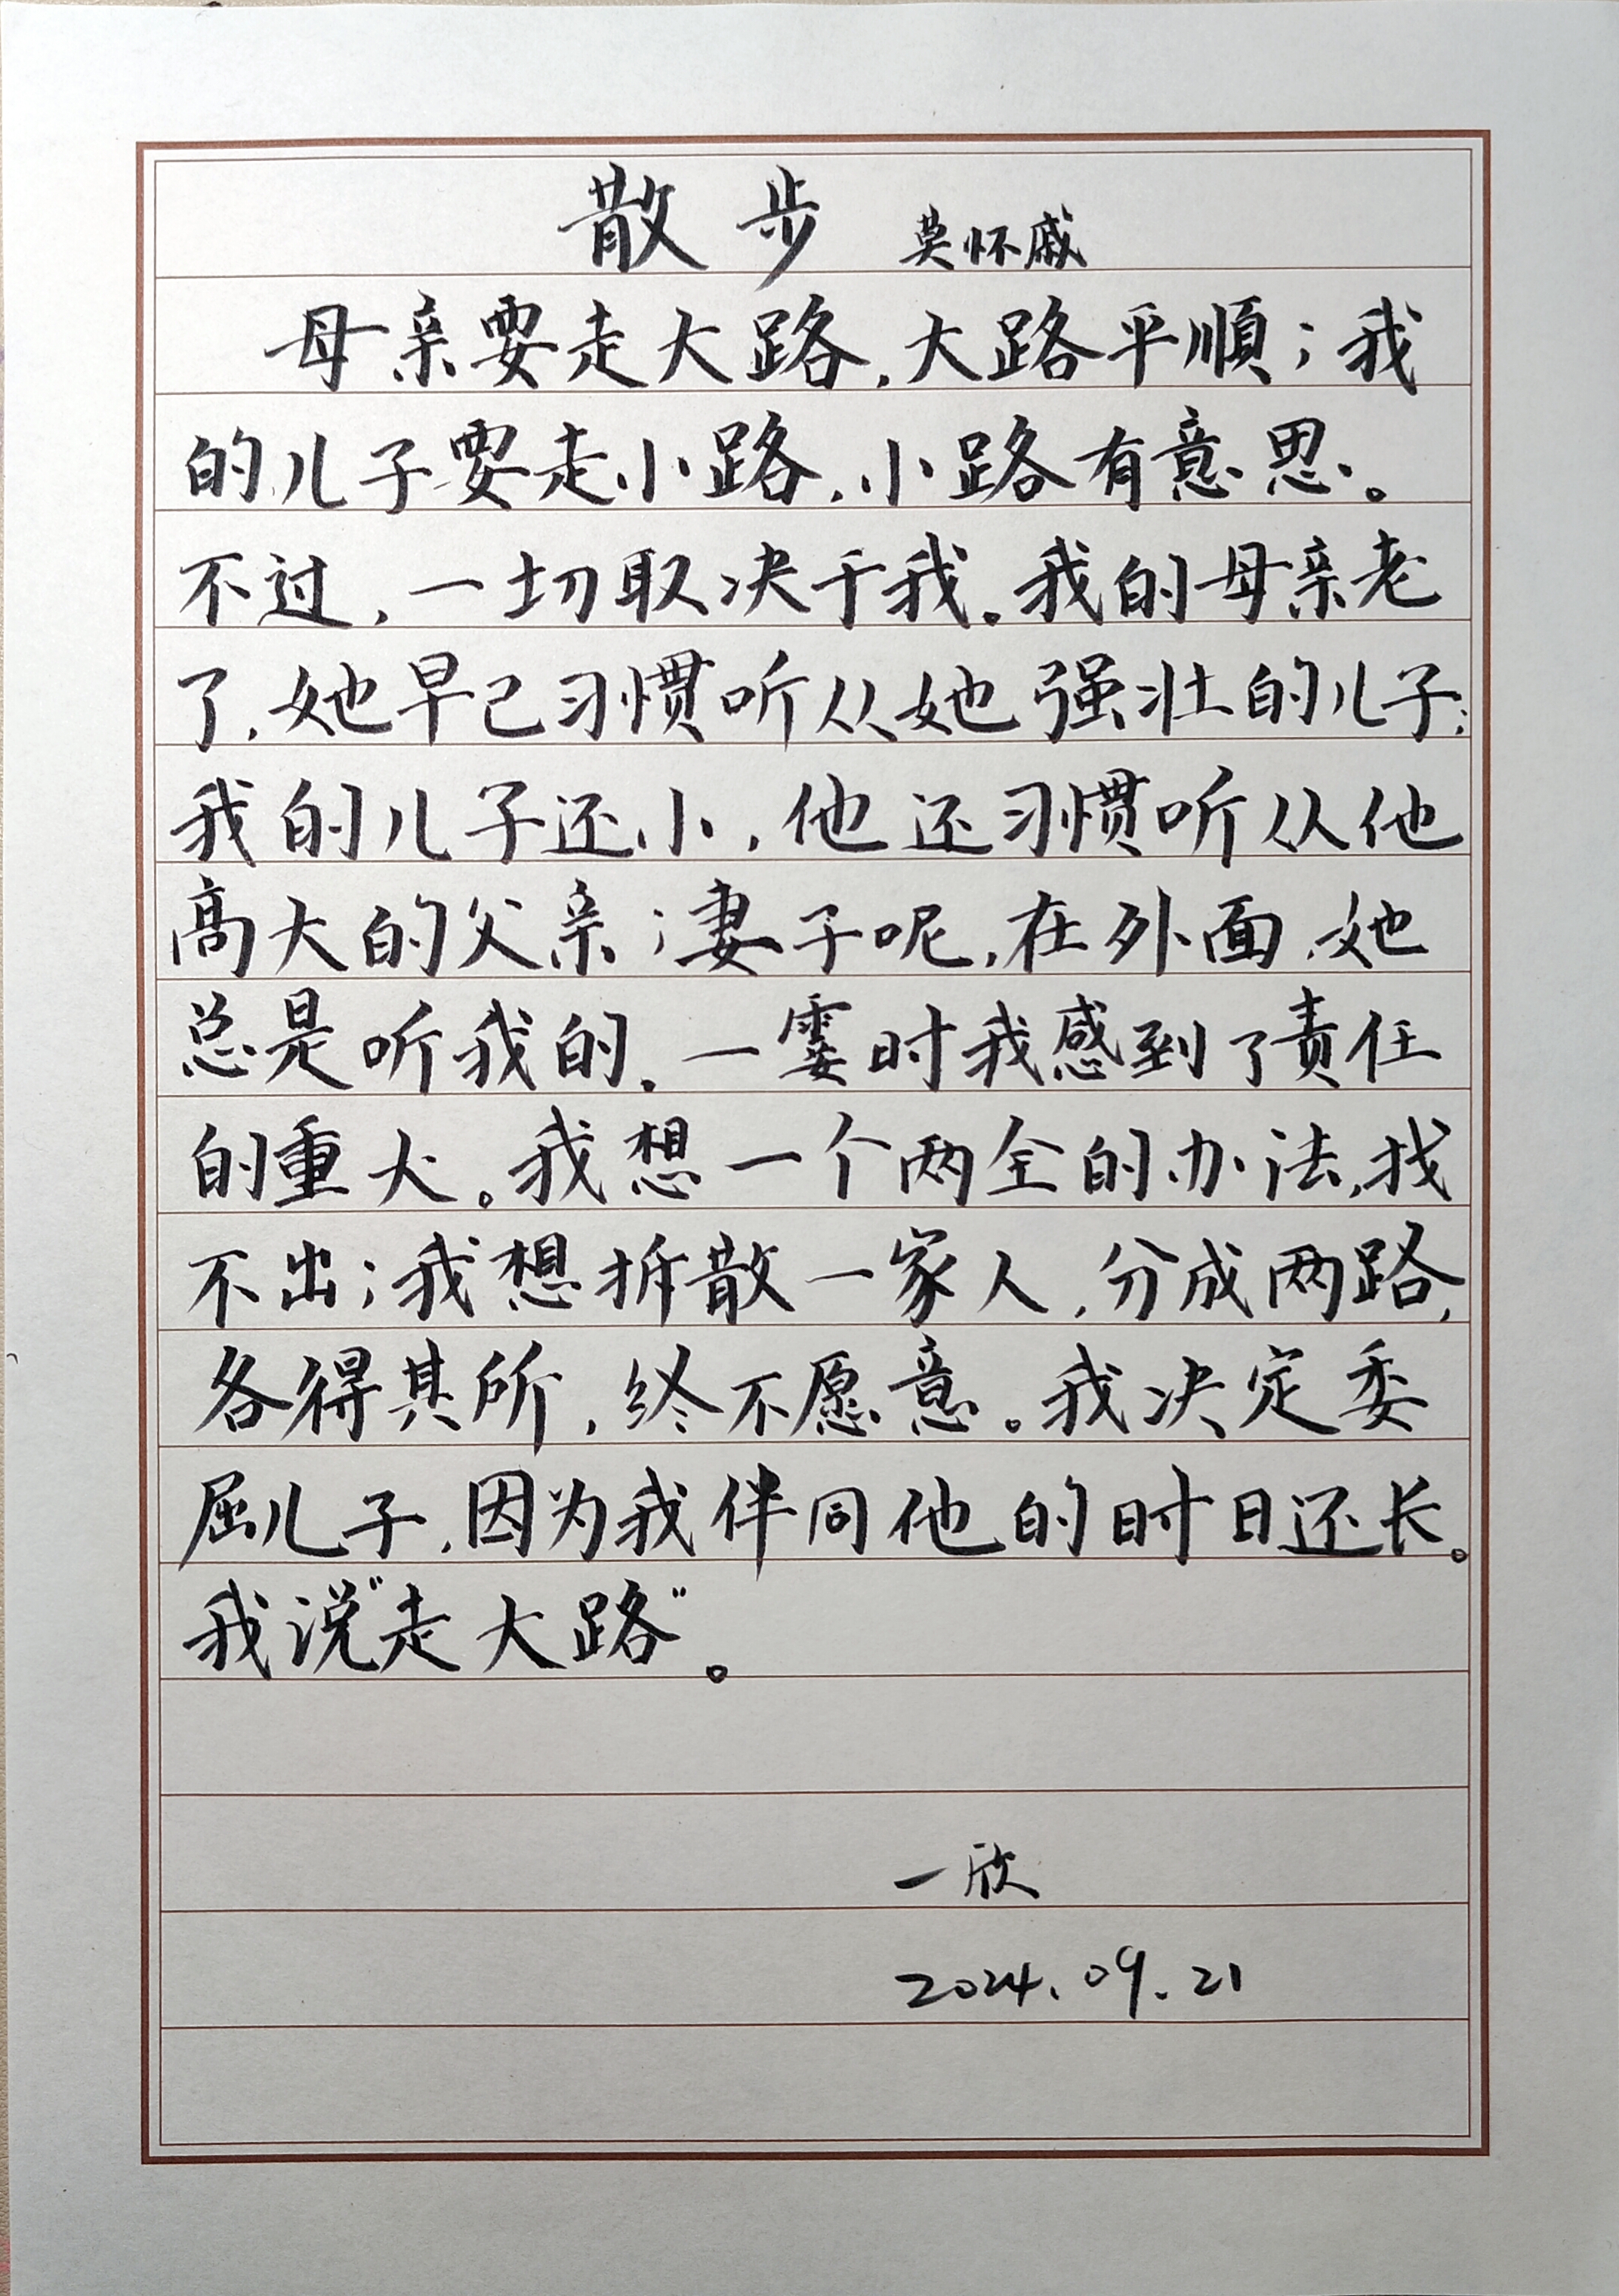 散步 莫怀戚
母亲要走大路,大路平順;我
的儿子要走小路,小路有意思。
不过,一切取决于我。我的母亲老
了,她早已习惯听从她强壮的儿子;
我的儿子还小,他还习惯听从他
高大的父亲;妻子呢,在外面,她
总是听我的。一霎时我感到了责任
的重大。我想一个两全的办法,找
不出;我想拆散一家人,分成两路,
各得其所,终不愿意。我决定委
屈儿子,因为我伴同他的时日还长。
我说“走大路”。
一欣
2024.09.21